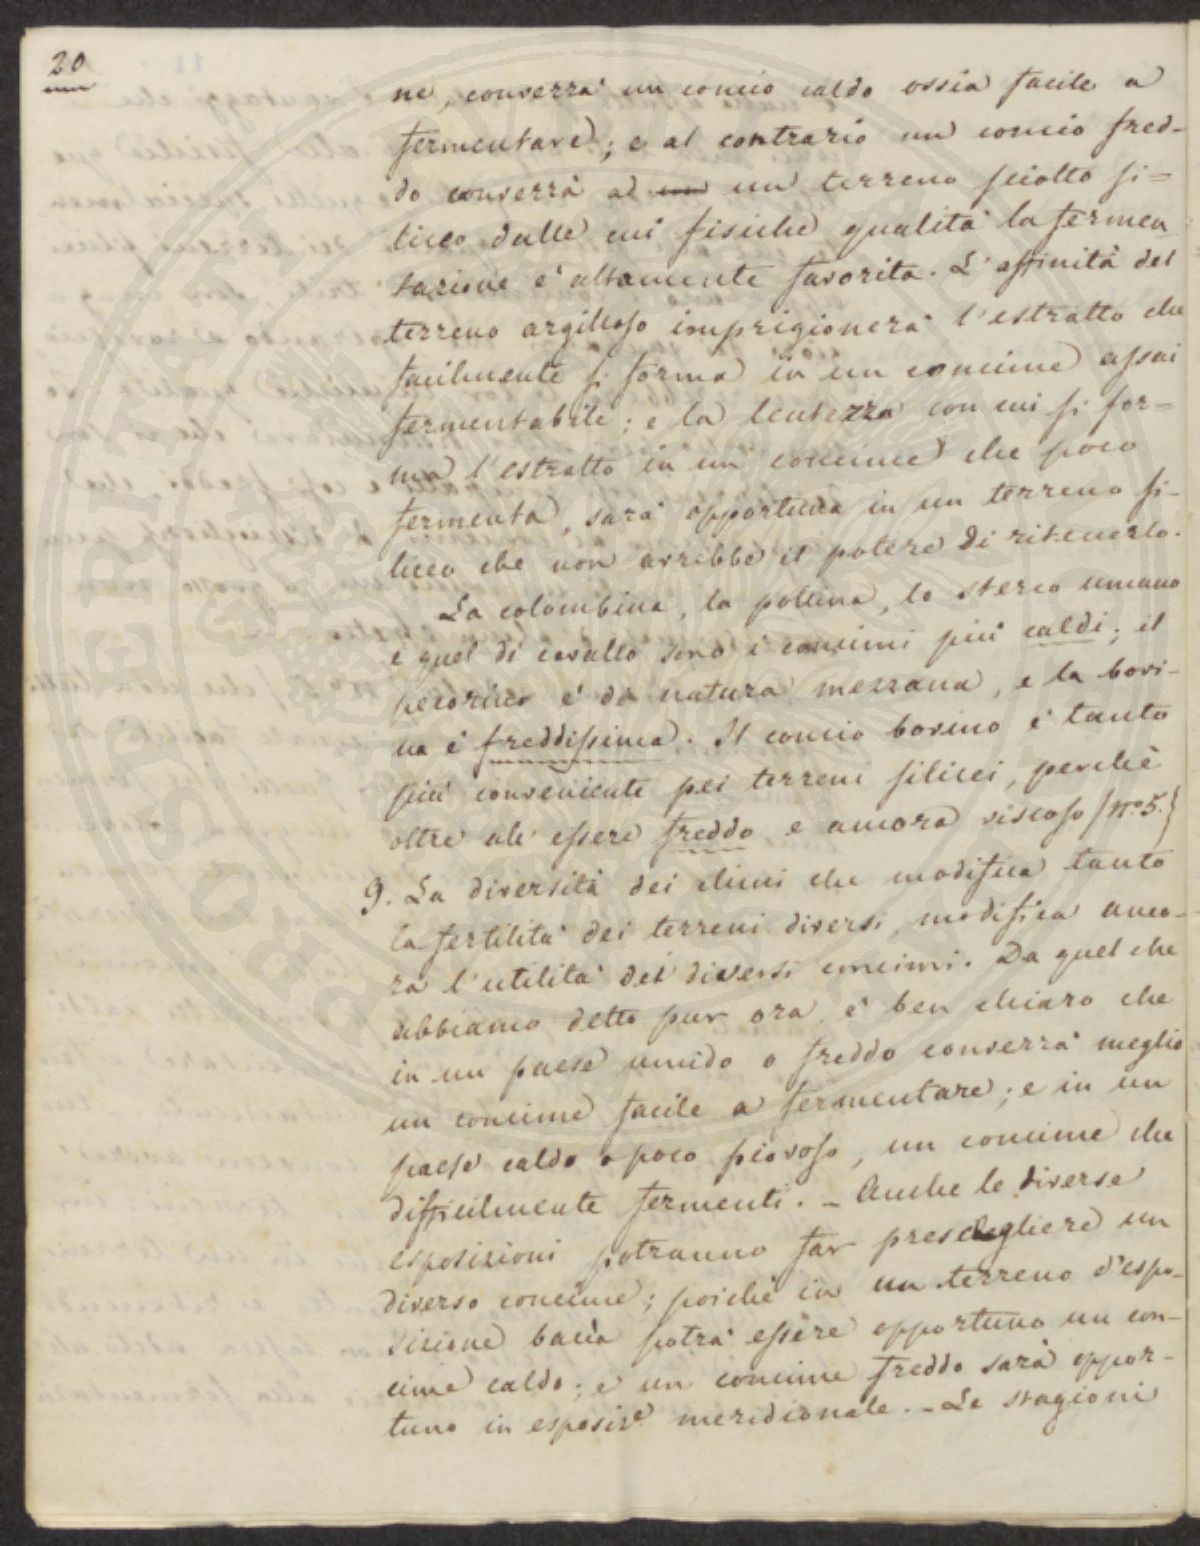 20
ne, converrà un concio caldo ossia facile a
fermentare; e al contrario un concio fred-
do converrà ad un un terreno sciolto si=
liceo dalle cui fisiche qualità la fermen
tazione è altamente favorita. L'affinità del
terreno argilloso imprigionerà l'estratto che
facilmente si forma in un concime assai
fermentabile; e la lentezza con cui si for=
ma l'estratto in un concime che poco
fermenta, sarà opportuna in un terreno si-
liceo che non avrebbe il potere di ritenerlo.
La colombina, la pollina, lo sterco umano
e quel di cavallo sono i concimi più caldi; il
pecorino è di natura mezzana, e la bovi-
na è freddissima. Il concio bovino è tanto
più conveniente pei terreni silicei, perchè
oltre all' essere freddo è ancora viscoso (n.º 5.)
9. La diversità dei climi che modifica tanto
la fertilità dei terreni diversi, modifica anco-
ra l'utilità dei diversi concimi. Da quel che
abbiamo detto pur ora, è ben chiaro che
in un paese umido o freddo converrà meglio
un concime facile a fermentare; e in un
paese caldo o poco piovoso, un concime che
difficilmente fermenti. - Anche le diverse
esposizioni potranno far prescegliere un
diverso concime; poichè in un terreno d'espo-
sizione bacìa potrà essere opportuno un con-
cime caldo; e un concime freddo sarà oppor-
tuno in esposiz.e meridionale. - Le stagioni
PROSPERITATI PUBLICAE